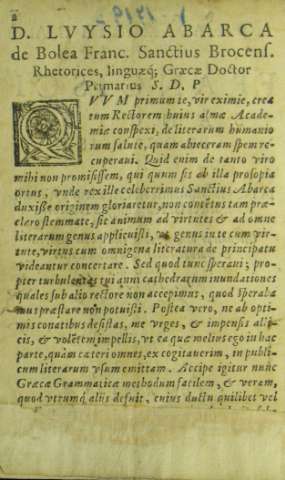 D. LVYSIO ABARCA
de Bolea Franc. Sanctius Brocens.
Rhetorices, linguæq; Græcæ Doctor
Primarius S. D. P.
QVVM primum te, vir eximie, crea
tum Rectorem huius almæ Acade-
miæ conspexi, de literarum humanio
rum salute, quam abieceram spem re-
cuperaui. Quid enim de tanto viro
mihi non promisissem, qui quum sis ab illa prosapia
ortus, vnde rex ille celeberrimus Sanctius Abarca
duxisse originem gloriaretur, non concētus tam præ-
claro stemmate, sic animum ad virtutes & ad omne
literarum genus applicuisti, vt genus in te cum vir-
tute, virtus cum omnigena literatura de principatu
videantur concertare. Sed quod tunc speraui; pro-
pter turbulentas tui anni cathedrarum inundationes
quales sub alio rectore non accepimus, quod sperabā
mus præstare non potuisti. Postea vero, ne ab opti-
mis conatibus desistas, me vrges, & impensis ali-
cis, & volētem impellis, vt ea quæ melius ego in hac
parte, quàm cæteri omnes, excogitauerim, in publi-
cum literarum vsum emittam. Accipe igitur nunc
Græcæ Grammaticæ methodum facilem, & veram,
quod vtrumq; aliis defuit, cuius ductu quilibet vel